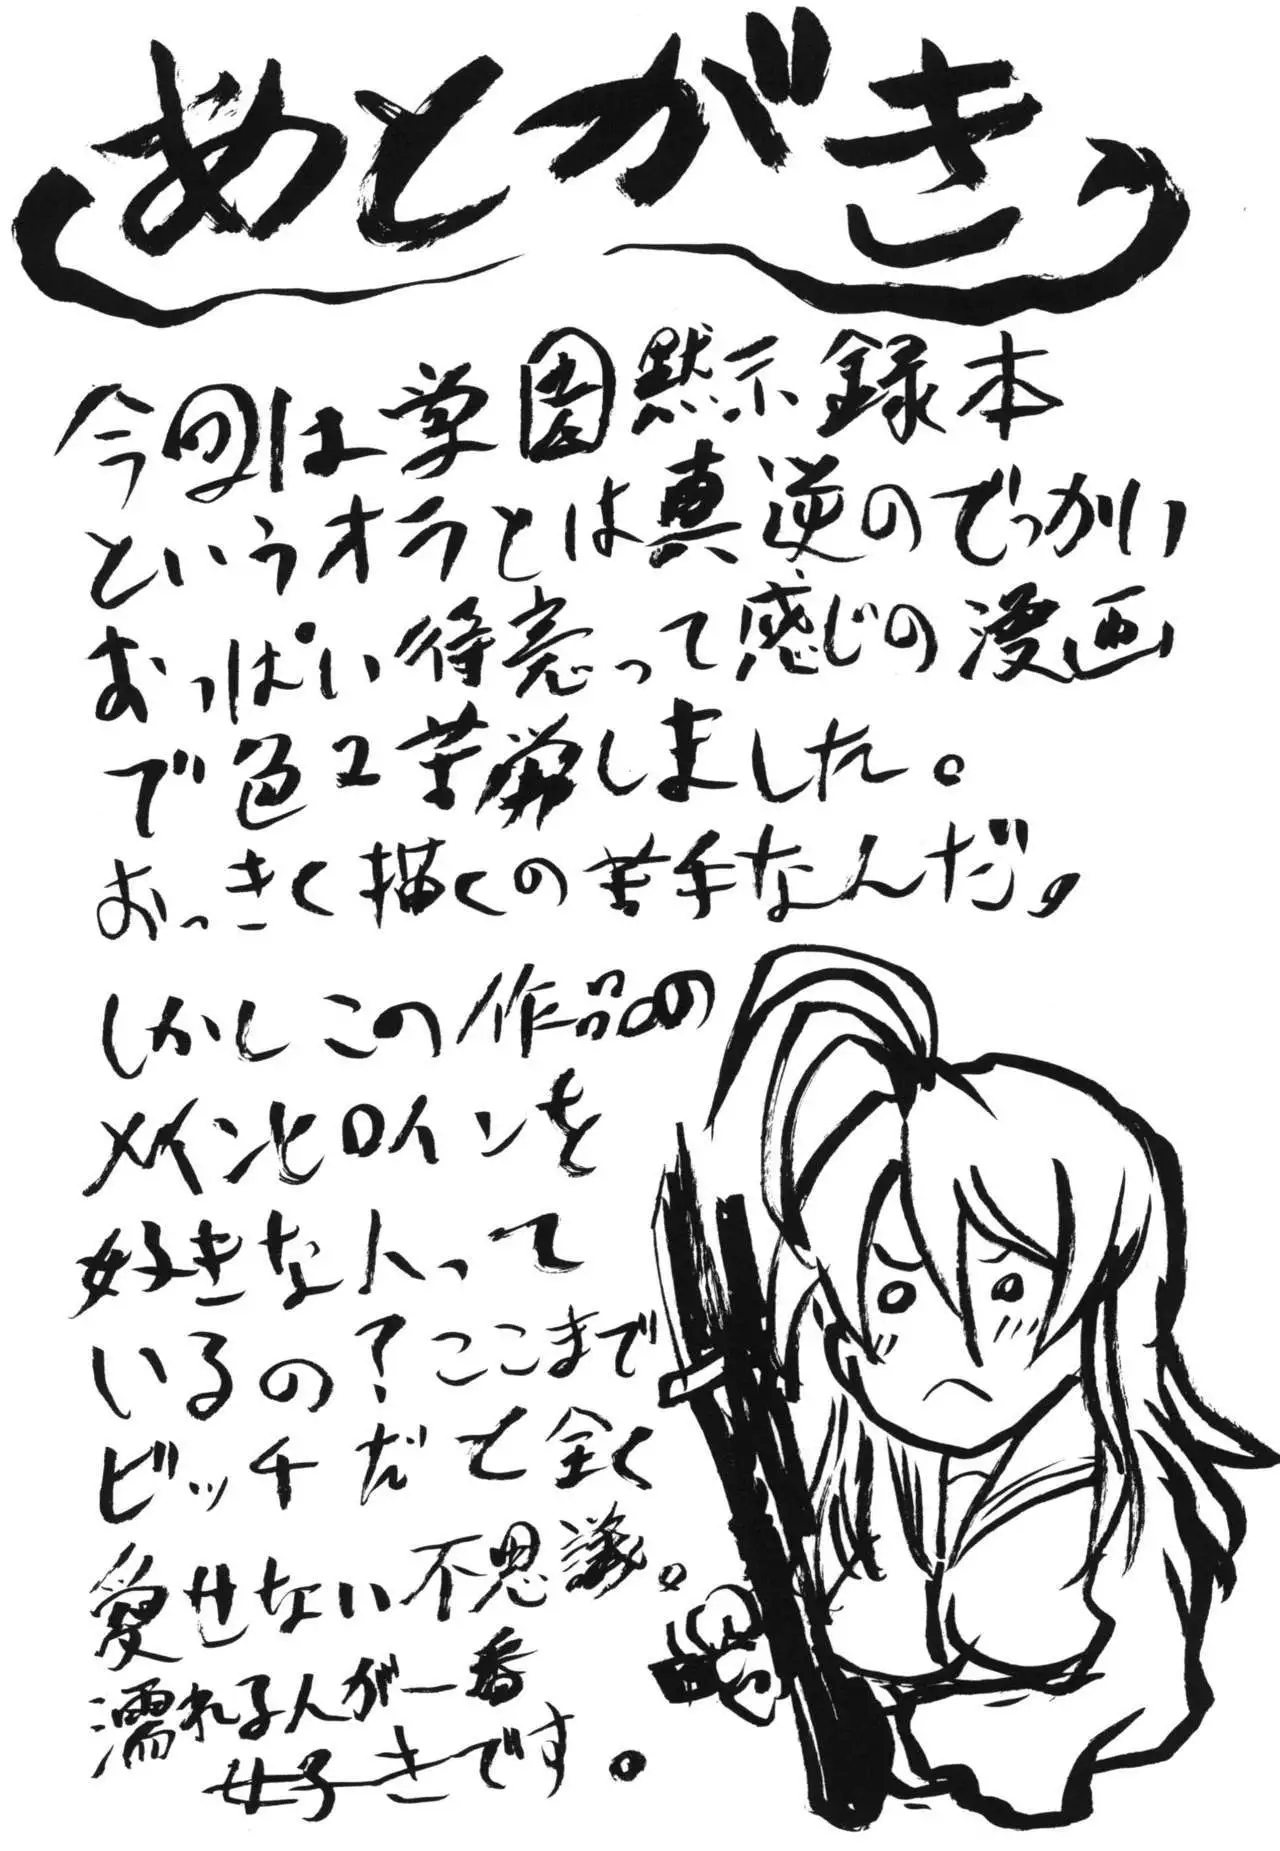 あとがき
今回は学園黙示録本
というオラとは真逆のでっかい
おっぱい得意って感じの漫画
で色2苦労しました。
おっきく描くの苦手なんだ、
しかしこの作品の
メインヒロインを
好きな人って
いるの？ここまで
ビッチだと全く
愛せない不思議。
濡れ子人が一番
好きです。